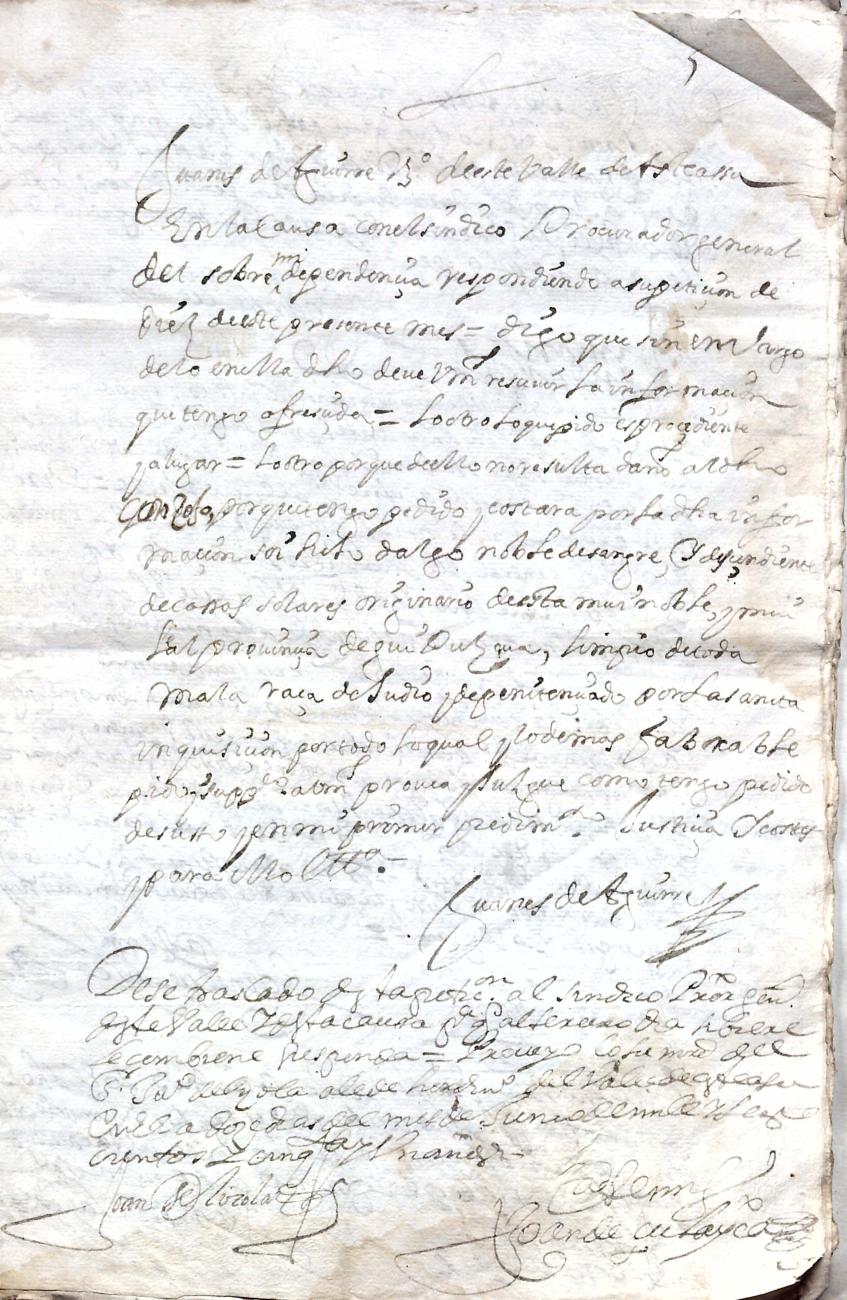 5
Juanes de Aguirre Vzº deeste Valle de Asteassu
En la Causa conel sindico Procurador general
del sobre mi dependençia respondiendo a su petiçion de
Diez de este presente mes = digo que sin envargo
de lo en ella dho deve Vm resçivir la informaçion
que tengo ofresçida = Lo otro lo que pido es proçediente
y a lugar = Lo otro porque de ello no resulta daño al dho
Conzejo, porque tengo pedido y costara por la dha infor
maçion soi hijo dalgo noble de sangre, y desçendiente
de cassas solares originario desta mui noble, y mui
Leal provinçia de guipuzcua, limpio de toda
mala raça de Judio y de penitençiado por la sancta
inquisiçion por todo lo qual y lo demas faborable
pido y suppco. a Vm provea y Juzgue como tengo pedido
de suso y en mi primer pedimto. Justiçia y costas
y para ello Ettª.
Juanes de Aguirre
Dese traslado desta petiçon. al sindico Pror gen.
deste Valle y esta causa pª q al terçero dia
le combiene responda = Proveyo lo su md del
Sr. Juº de Lizola alcde hordinº del Valle de Asteasu
En el a doze dias del mes de Junio de mill y seis
cientos y cinqta y un años
Joan de Lizola
Ante mi
Joan de